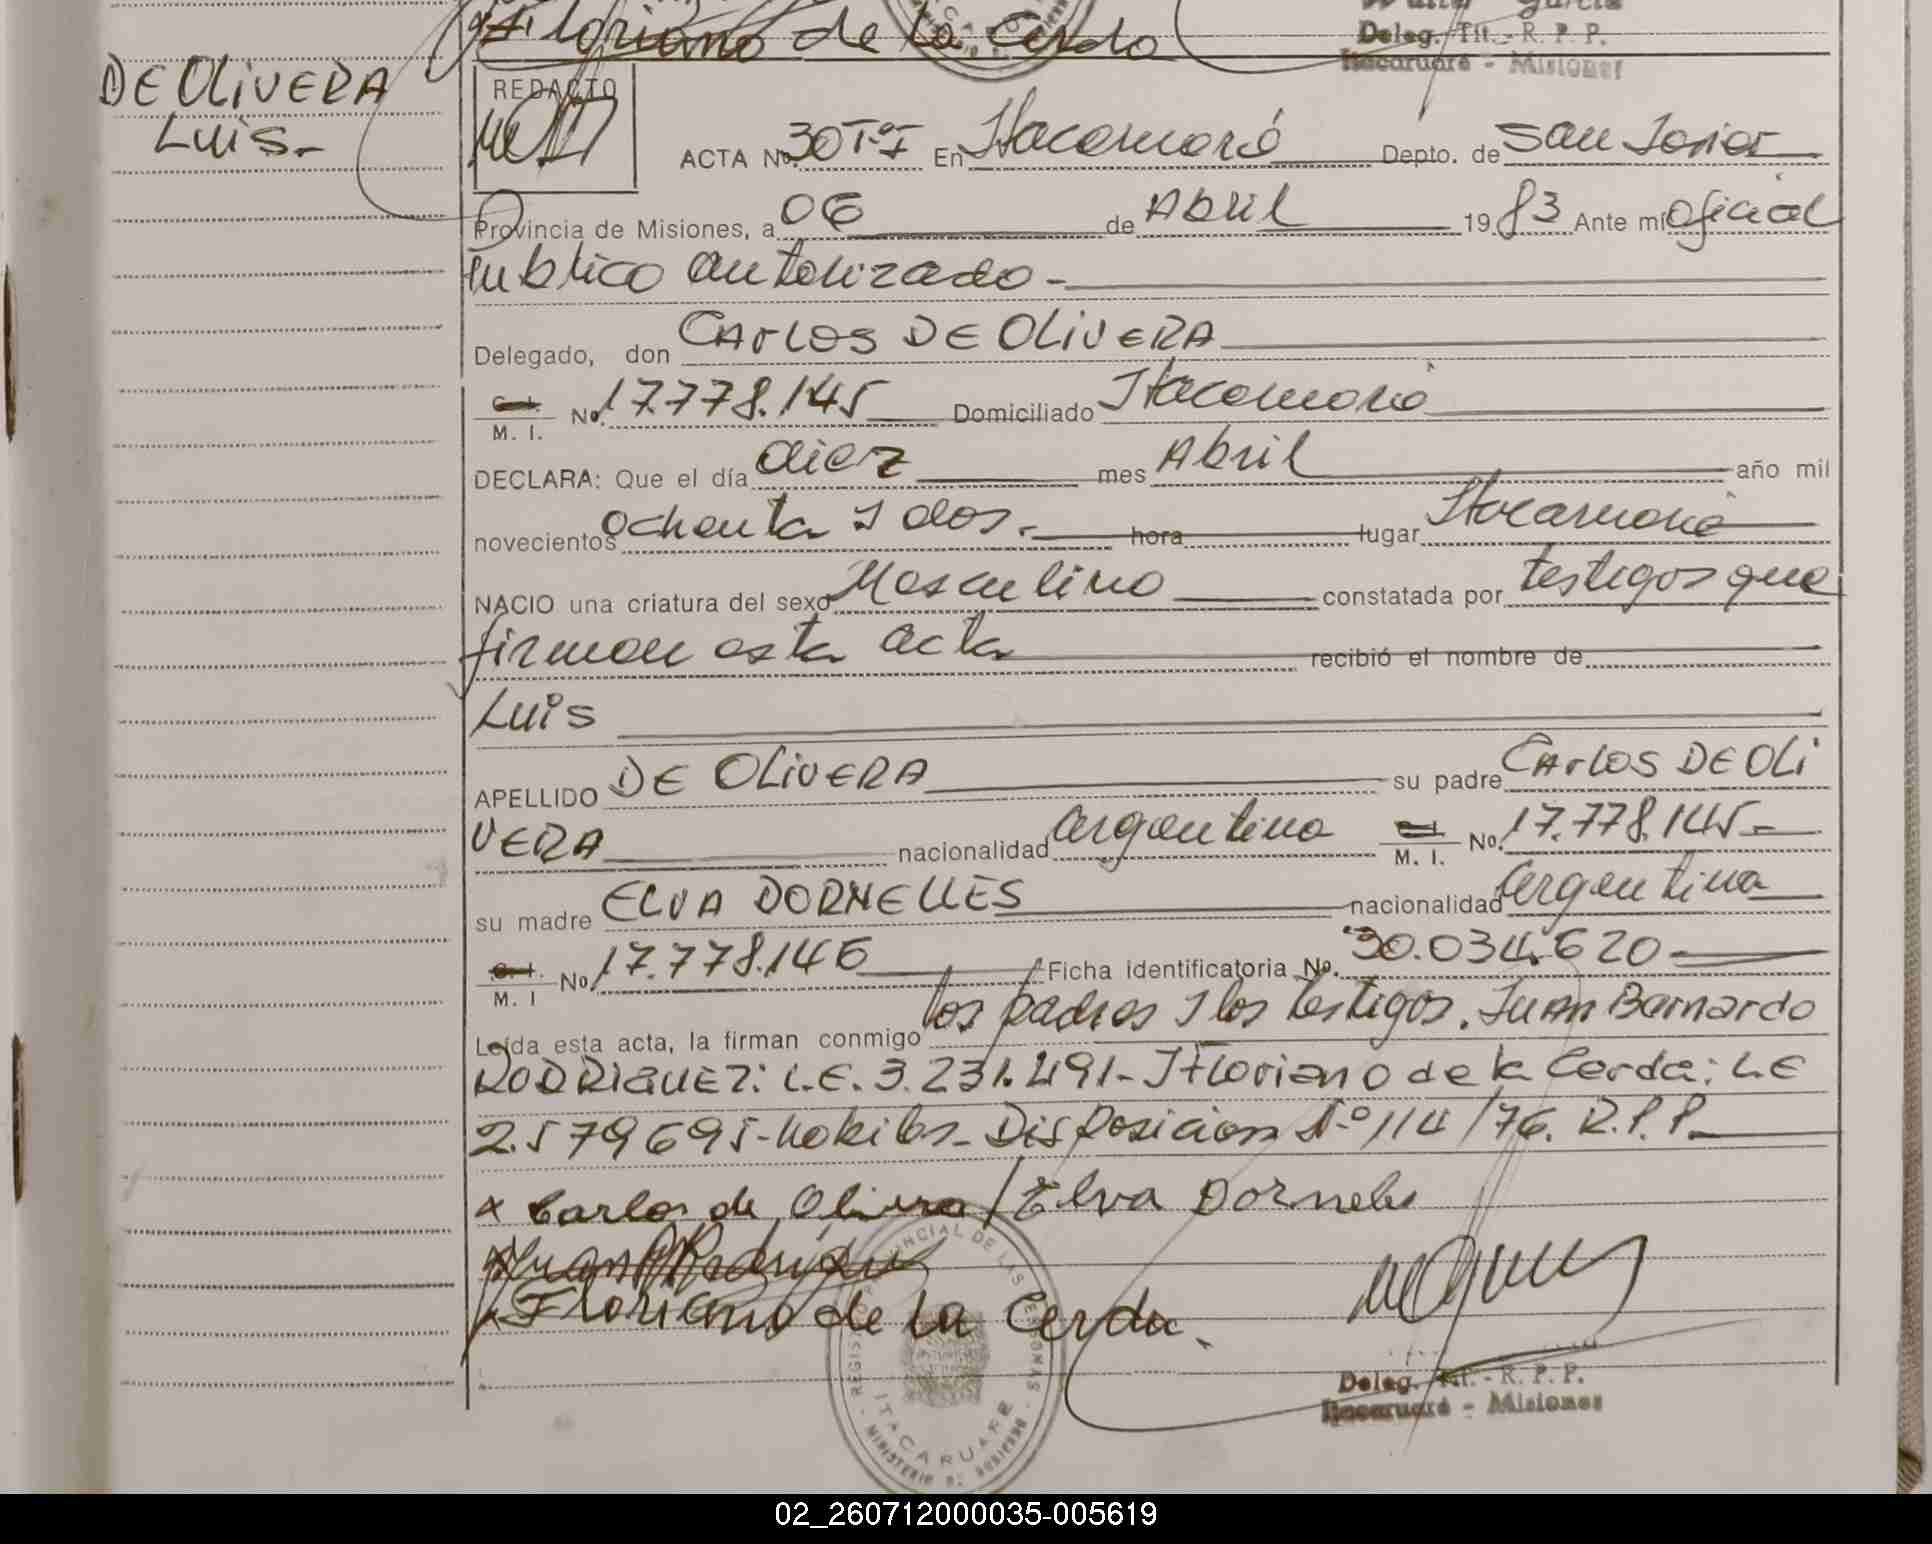 Floriano de la Cerda
Walter García
Deleg. Tit. - R. P. P.
Itacaruaré - Misiones
DE OLIVERA
Luis.-
REDACTO
ACTA No. 30 Tº I En Itacaruaré Depto. de San Javier
Provincia de Misiones, a 06 de Abril 1983 Ante mí oficial
Publico autorizado -
Delegado, don CARLOS DE OLIVERA
C. I. M. I. No. 17.778.145 Domiciliado Itacaruaré
DECLARA: Que el día diez mes Abril año mil
novecientos ochenta y dos.- hora lugar Itacaruaré
NACIO una criatura del sexo Masculino constatada por testigos que
firman esta acta recibió el nombre de
Luis
APELLIDO DE OLIVERA su padre CARLOS DE OLI
VERA nacionalidad argentina C. I. M. I. No. 17.778.145-
su madre ELVA DORNELLES nacionalidad argentina
C. I. M. I No. 17.778.146 Ficha identificatoria No. 30.034.620
Leída esta acta, la firman conmigo los padres y los testigos. Juan Barnardo
RODRIGUEZ: L.E. 3.231.491- y Floriano de la Cerda: L.E
2.579695- Disposicion Nº 114/76. R.P.P.
x Carlos de Olivera / Elva Dorneles
Floriano de la Cerda.
REGISTRO PROVINCIAL DE LAS PERSONAS
ITACARUARE
MINISTERIO DE GOBIERNO
Deleg. Tit. - R. P. P.
Itacaruaré - Misiones
02_260712000035-005619